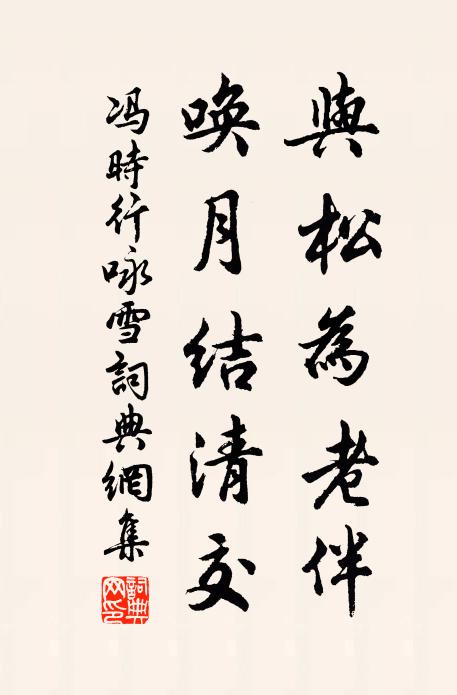 與松為老伴
喚月結清交
馮時行咏雪詞典網集
詞典
网印